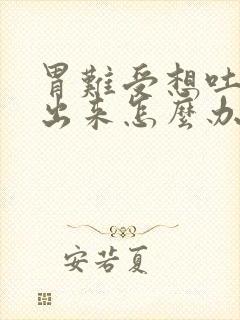 胃難受想吐
出来怎麼办
安若夏